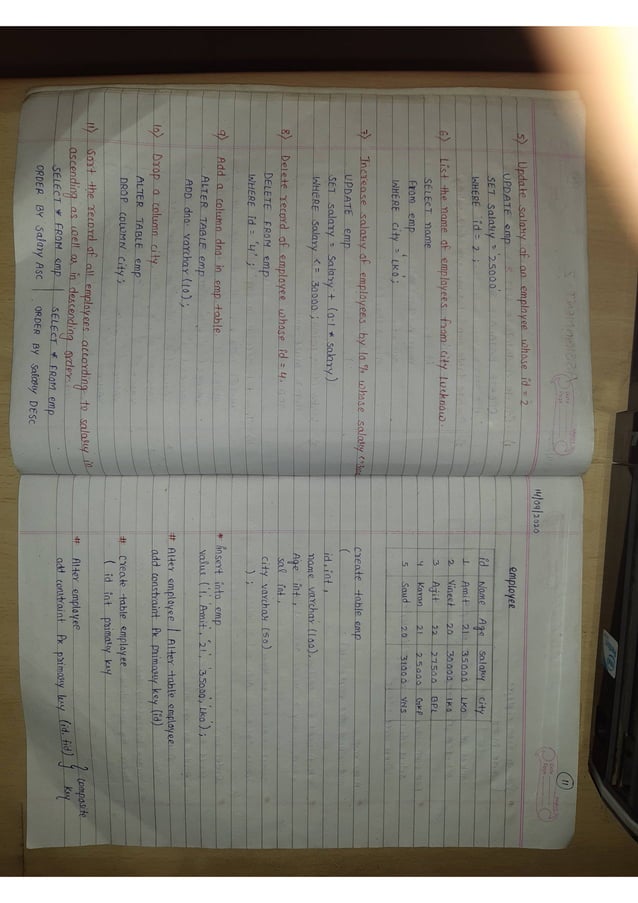 5) Update salary of an employee whose id = 2
UPDATE emp
SET salary = '25000'
WHERE id = 2 ;
6) List the name of employees from city Lucknow.
SELECT name
From emp
WHERE city = 'LKO' ;
7) Increase salary of employees by 10% whose salary
UPDATE emp
SET salary = salary + (0.1 * salary)
WHERE salary <= 30000 ;
8) Delete record of employee whose id = 4.
DELETE FROM emp
WHERE id = '4' ;
9) Add a column dno. in emp table
ALTER TABLE emp
ADD dno. varchar (10) ;
10) Drop a column city.
ALTER TABLE emp
DROP COLUMN City ;
11) Sort the record of all employees according to salary in
ascending as well as in descending order.
SELECT * FROM emp | SELECT * FROM emp
ORDER BY Salary ASC | ORDER BY Salary DESC
14/09/2020
11
employee
id Name Age salary city
1 Amit 21 35000 LKO
2 Vineet 20 30000 LKO
3 Ajit 22 27500 BPL
4 Karan 21 25000 GKP
5 Saud 20 31000 VNS
create table emp
(
id int,
name varchar (100),
Age int,
sal int,
city varchar (50)
) ;
* Insert into emp
value ( 1, 'Amit', '21', '35000', 'LKO') ;
# Alter employee | Alter table employee
add constraint PK primary key (id)
# Create table employee
( id int primary key
# Alter employee
add constraint PK primary key (id, fid) } composite key